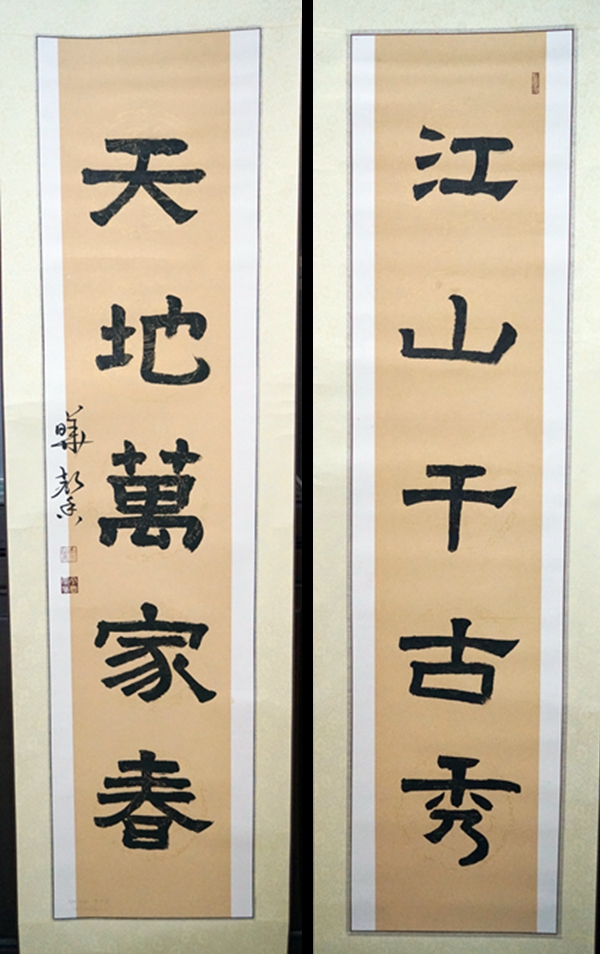 江山千古秀
天地萬家春